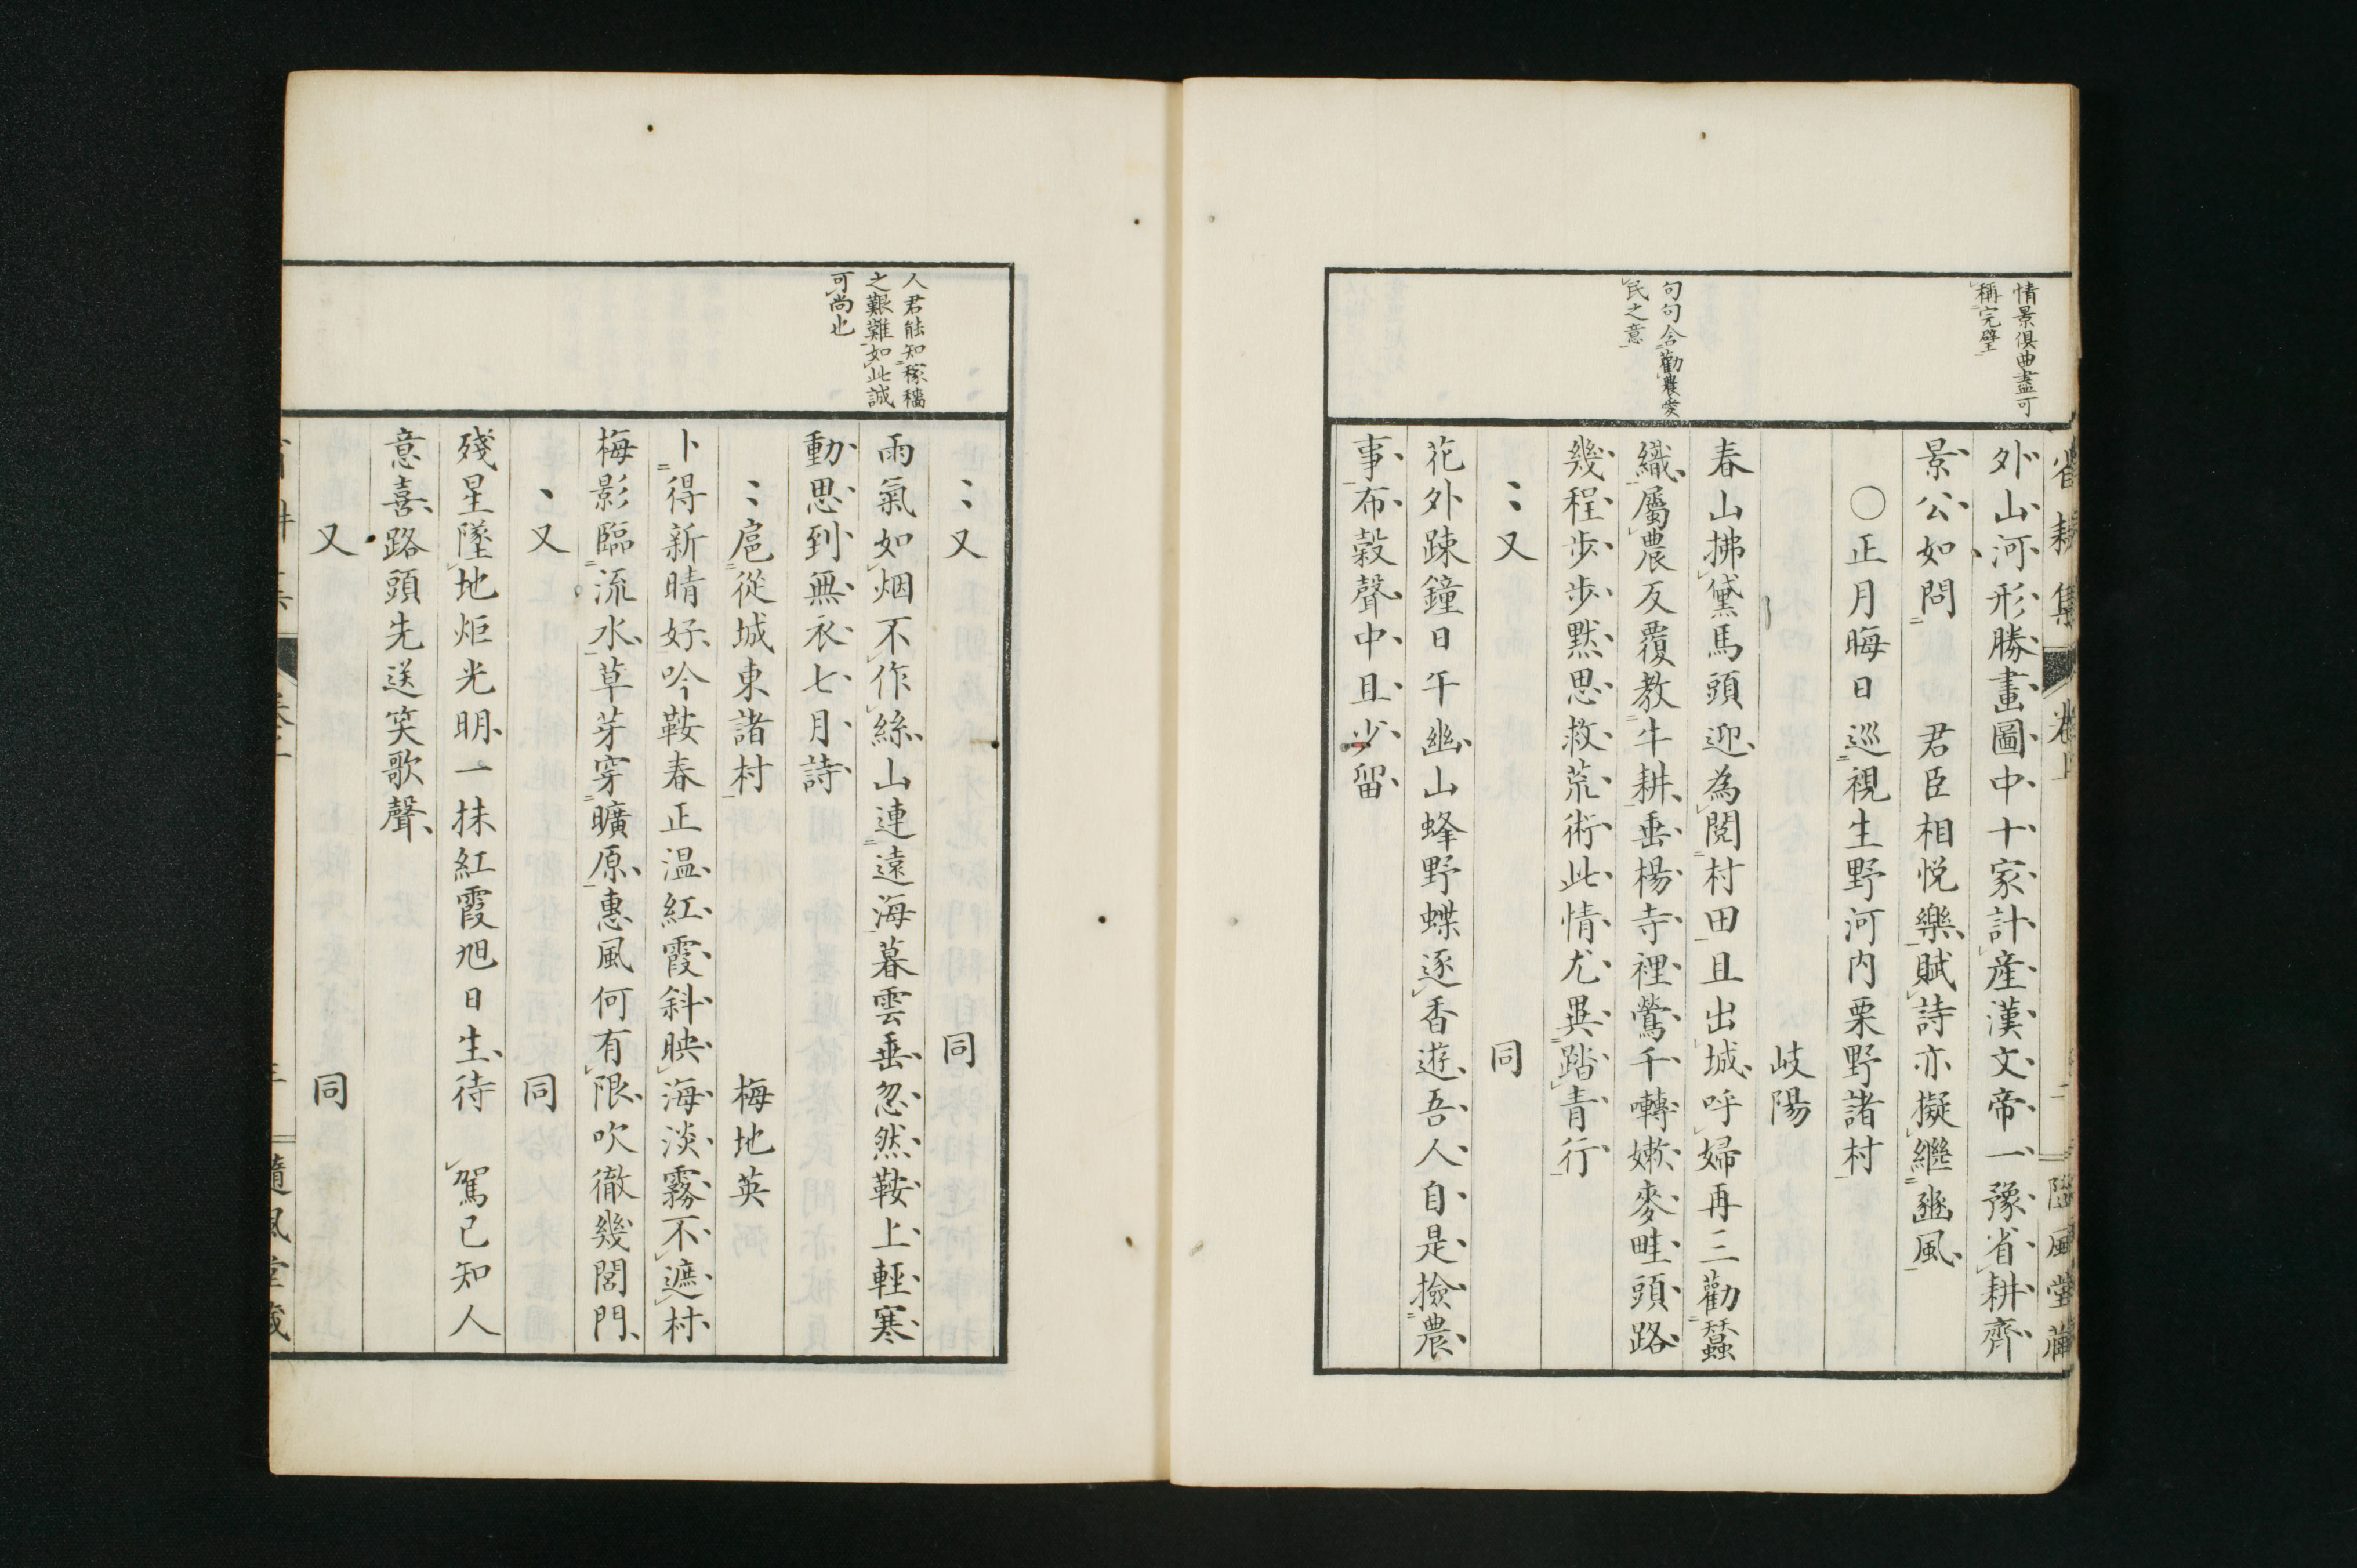 省耕集 卷上 二 隨風堂藏
情景俱曲盡可
稱完璧
外山河形勝畫圖中十家計產漢文帝一豫省耕齊
景公如問 君臣相悅樂賦詩亦擬繼豳風
〇正月晦日巡視生野河内栗野諸村
岐陽
春山拂黛馬頭迎為閱村田且出城呼婦再三勸蠶
句句含勸農愛
民之意
織屬農反覆教牛耕垂楊寺裡鶯千囀嫩麥畦頭路
幾程步步默思救荒術此情尤異踏青行
〻又 同
花外疎鐘日午幽山蜂野蝶逐香遊吾人自是撿農
事布穀聲中且少留
〻又 同
人君能知稼穡
之艱難如此誠
可尚也
雨氣如烟不作絲山連遠海暮雲垂忽然鞍上輕寒
動思到無衣七月詩
〻扈從城東諸村 梅地英
卜得新晴好吟鞍春正温紅霞斜映海淡霧不遮村
梅影臨流水草芽穿曠原惠風何有限吹徹幾閭門
、又 同
殘星墜地炬光明一抹紅霞旭日生待 駕已知人
意喜路頭先送笑歌聲
又 同
隨風堂藏